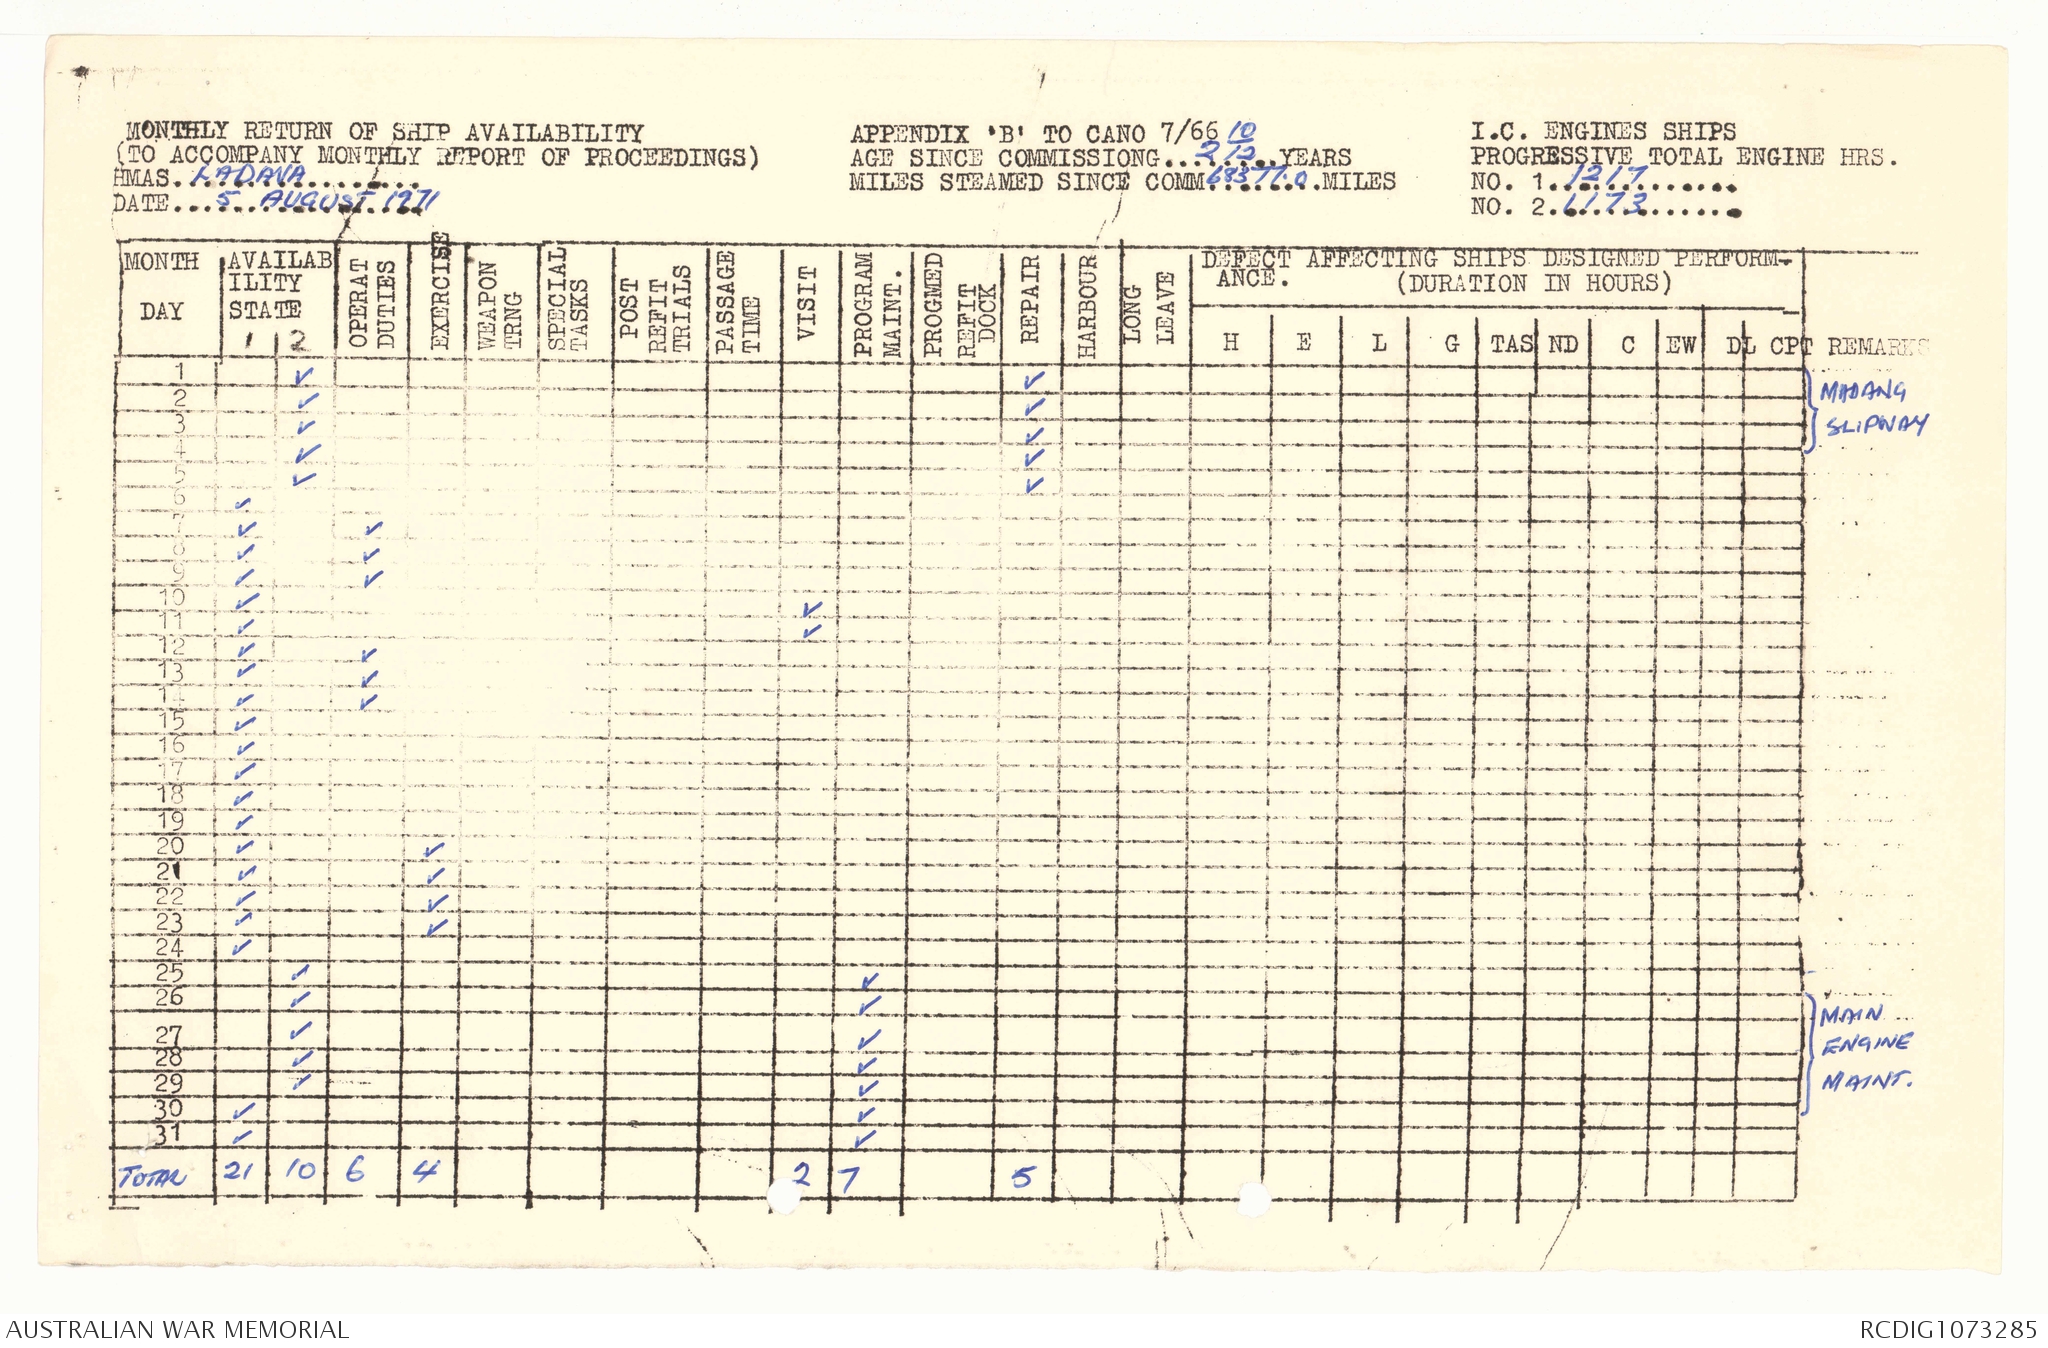 MONTHLY RETURN OF SHIP AVAILABILITY
(TO ACCOMPANY MONTHLY REPORT OF PROCEEDINGS)
HMAS. LADAVA
DATE... 5 AUGUST 1971
APPENDIX 'B' TO CANO 7/66
AGE SINCE COMMISSIONG... 2 10/12 ..YEARS
MILES STEAMED SINCE COMM. 68377.0 .MILES
I.C. ENGINES SHIPS
PROGRESSIVE TOTAL ENGINE HRS.
NO. 1. 1217
NO. 2. 1173
MONTH DAY
AVAILAB ILITY STATE
1 2
OPERAT DUTIES
EXERCISE
WEAPON TRNG
SPECIAL TASKS
POST REFIT TRIALS
PASSAGE TIME
VISIT
PROGRAM MAINT.
PROGMED REFIT DOCK
REPAIR
HARBOUR
LONG LEAVE
DEFECT AFFECTING SHIPS DESIGNED PERFORM-
ANCE. (DURATION IN HOURS)
H E L G TAS ND C EW DL CPT REMARKS
1 ✓ ✓
2 ✓ ✓
3 ✓ ✓
4 ✓ ✓
5 ✓ ✓
MADANG
SLIPWAY
6 ✓
7 ✓ ✓
8 ✓ ✓
9 ✓ ✓
10 ✓ ✓
11 ✓ ✓
12 ✓ ✓
13 ✓ ✓
14 ✓ ✓
15 ✓
16 ✓
17 ✓
18 ✓
19 ✓
20 ✓ ✓
21 ✓ ✓
22 ✓ ✓
23 ✓ ✓
24 ✓
25 ✓ ✓
26 ✓ ✓
27 ✓ ✓
28 ✓ ✓
29 ✓ ✓
30 ✓ ✓
31 ✓ ✓
MAIN
ENGINE
MAINT.
TOTAL 21 10 6 4 2 7 5
AUSTRALIAN WAR MEMORIAL
RCDIG1073285